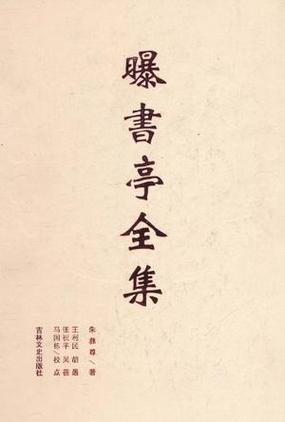 曝書亭全集
朱彝尊/著
王利民 胡愚
张祝平 吴蓓
马国栋/校点
吉林文史出版社